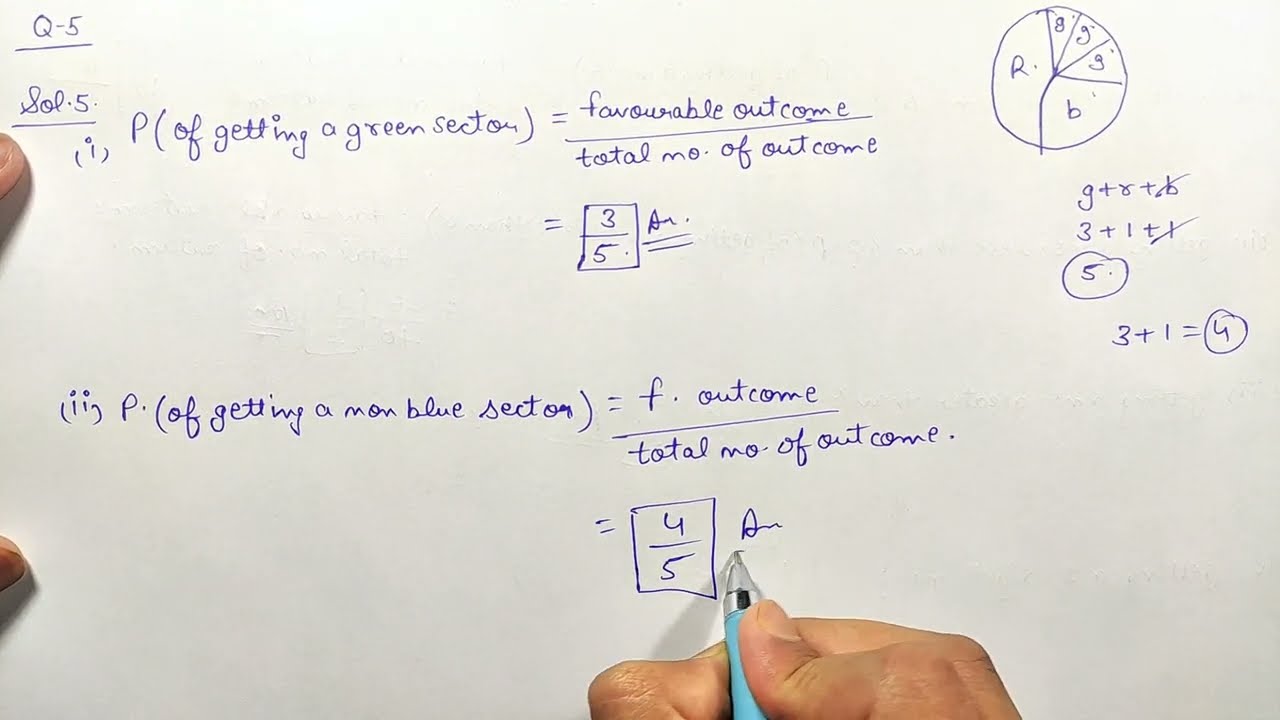 Q-5
Sol.5.
(i) P(of getting a green sector) = favourable outcome
total no. of outcome
= 3
5. An.
(ii) P. (of getting a non blue sector) = f. outcome
total no. of outcome.
= 4
5 An
R. g g g b
g+r+b
3+1+1
5.
3+1=4